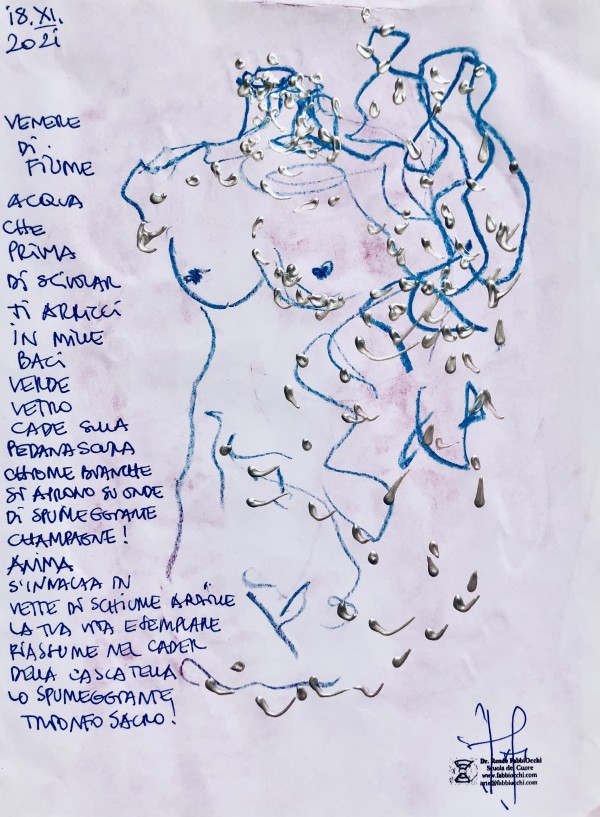 18.XI.
2021
VENERE
DI
FIUME
ACQUA
CHE
PRIMA
DI SCIVOLAR
TI ARRICCI
IN MILLE
BACI
VERDE
VETRO
CADE SULLA
PEDANA SCURA
CHIOME BIANCHE
SI APRONO SU ONDE
DI SPUMEGGIANTE
CHAMPAGNE!
ANIMA
S'INNALZA IN
VETTE DI SCHIUME
LA TUA VITA ESEMPLARE
RIASSUME NEL CADER
DELLA CASCATELLA
LO SPUMEGGIANTE
TRIONFO SACRO!
Dr. Renzo Fabbi Occhi
Scuola del Cuore
www.fabbiocchi.com
arte@fabbiocchi.com